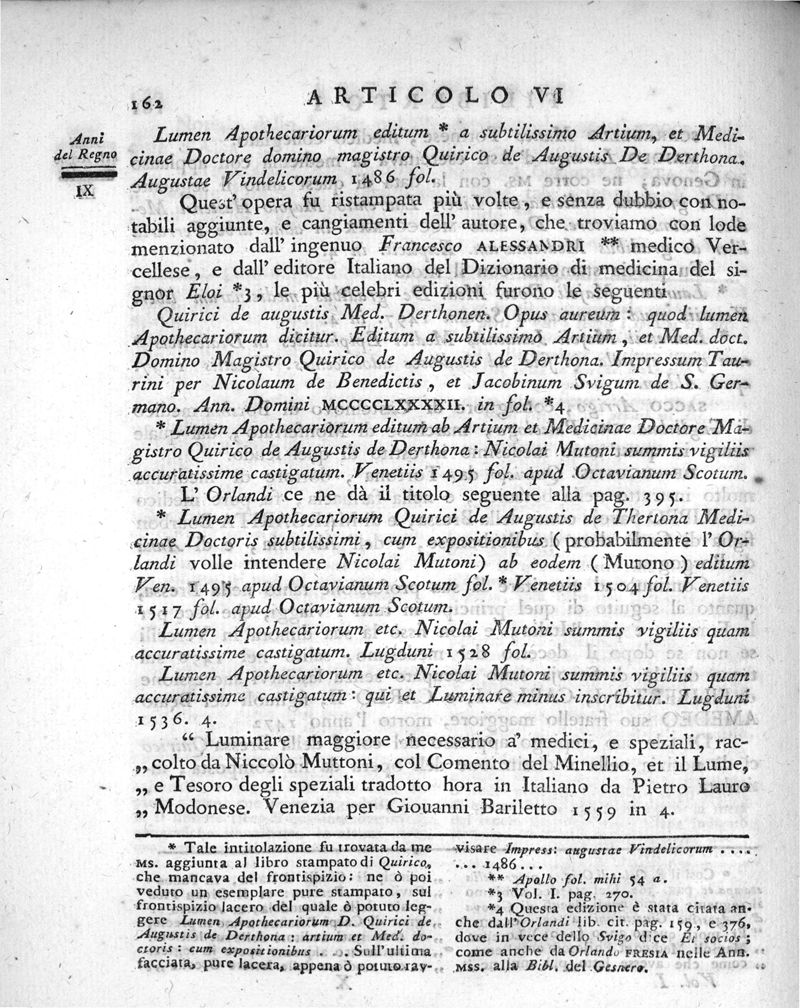 162 ARTICOLO VI
Anni
del Regno
IX
Lumen Apothecariorum editum * a subtilissimo Artium, et Medi-
cinae Doctore domino magistro Quirico de Augustis De Derthona.
Augustae Vindelicorum 1486 fol.
Quest' opera fu ristampata più volte, e senza dubbio con no-
tabili aggiunte, e cangiamenti dell' autore, che troviamo con lode
menzionato dall' ingenuo Francesco ALESSANDRI ** medico Ver-
cellese, e dall' editore Italiano del Dizionario di medicina del si-
gnor Eloi *3, le più celebri edizioni furono le seguenti
Quirici de augustis Med. Derthonen. Opus aureum: quod lumen
Apothecariorum dicitur. Editum a subtilissimo Artium, et Med. doct.
Domino Magistro Quirico de Augustis de Derthona. Impressum Tau-
rini per Nicolaum de Benedictis, et Jacobinum Svigum de S. Ger-
mano. Ann. Domini MCCCCLXXXXII. in fol. *4
* Lumen Apothecariorum editum ab Artium et Medicinae Doctore Ma-
gistro Quirico de Augustis de Derthona: Nicolai Mutoni summis vigiliis
accuratissime castigatum. Venetiis 1495 fol. apud Octavianum Scotum.
L' Orlandi ce ne dà il titolo seguente alla pag. 395.
* Lumen Apothecariorum Quirici de Augustis de Thertona Medi-
cinae Doctoris subtilissimi, cum expositionibus (probabilmente l' Or-
landi volle intendere Nicolai Mutoni) ab eodem (Mutono) editum
Ven. 1495 apud Octavianum Scotum fol. * Venetiis 1504 fol. Venetiis
1517 fol. apud Octavianum Scotum.
Lumen Apothecariorum etc. Nicolai Mutoni summis vigiliis quam
accuratissime castigatum. Lugduni 1528 fol.
Lumen Apothecariorum etc. Nicolai Mutoni summis vigiliis quam
accuratissime castigatum: qui et Luminare minus inscribitur. Lugduni
1536. 4.
“ Luminare maggiore necessario a' medici, e speziali, rac-
„ colto da Niccolò Muttoni, col Comento del Minellio, et il Lume,
„ e Tesoro degli speziali tradotto hora in Italiano da Pietro Lauro
„ Modonese. Venezia per Giouanni Bariletto 1559 in 4.
* Tale intitolazione fu trovata da me
MS. aggiunta al libro stampato di Quirico,
che mancava del frontispizio: ne ò poi
veduto un esemplare pure stampato, sul
frontispizio lacero del quale ò potuto leg-
gere Lumen Apothecariorum D. Quirici de
Augustis de Derthona: artium et Med. do-
ctoris: cum expositionibus . . . Sull'ultima
facciata, pure lacera, appena ò potuto rav-
visare Impress: augustae Vindelicorum ....
... 1486...
** Apollo fol. mihi 54 a.
*3 Vol. I. pag. 270.
*4 Questa edizione è stata citata an-
che dall'Orlandi lib. cit. pag. 159, e 376,
dove in vece dello Svigo dice Et socios;
come anche da Orlando FRESIA nelle Ann.
MSS. alla Bibl. del Gesnero.